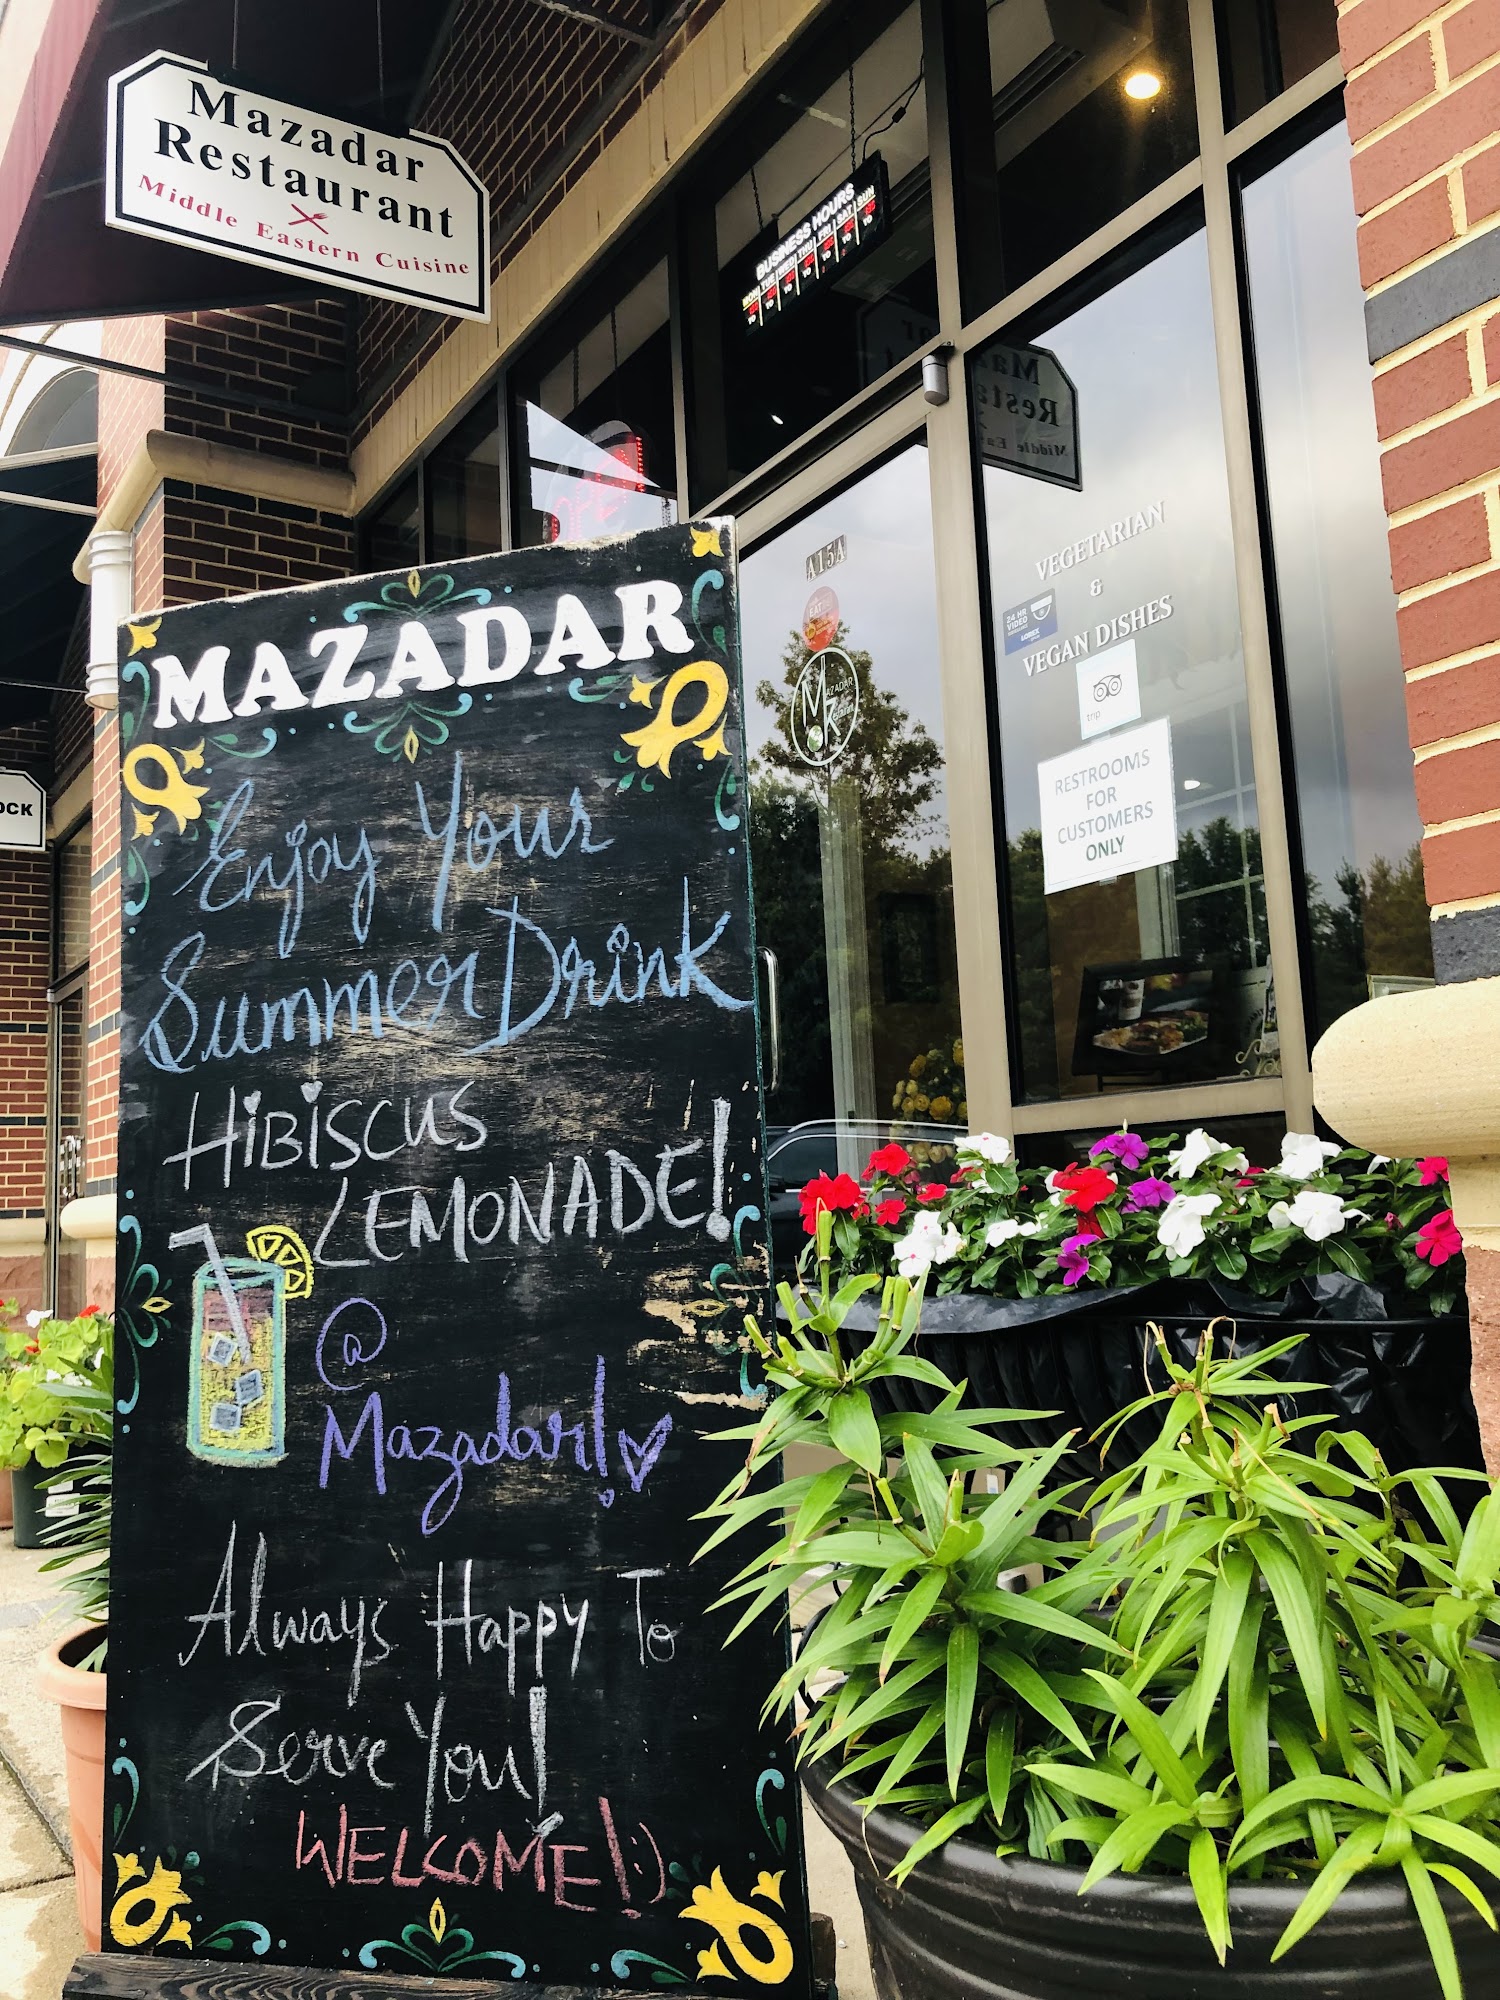 Mazadar
Restaurant
Middle Eastern Cuisine
BUSINESS HOURS
MON TUE WED THU FRI SAT SUN
TO TO TO TO TO TO TO
OPEN
A15A
EAT
VEGETARIAN
&
VEGAN DISHES
24 HR
VIDEO
LOREX
MAZADAR
MK
trip
RESTROOMS
FOR
CUSTOMERS
ONLY
OCK
MAZADAR
Enjoy Your
Summer Drink
HiBiSCUS
LEMONADE!
@
Mazadar!
Always Happy To
Serve You!
WELCOME! :)